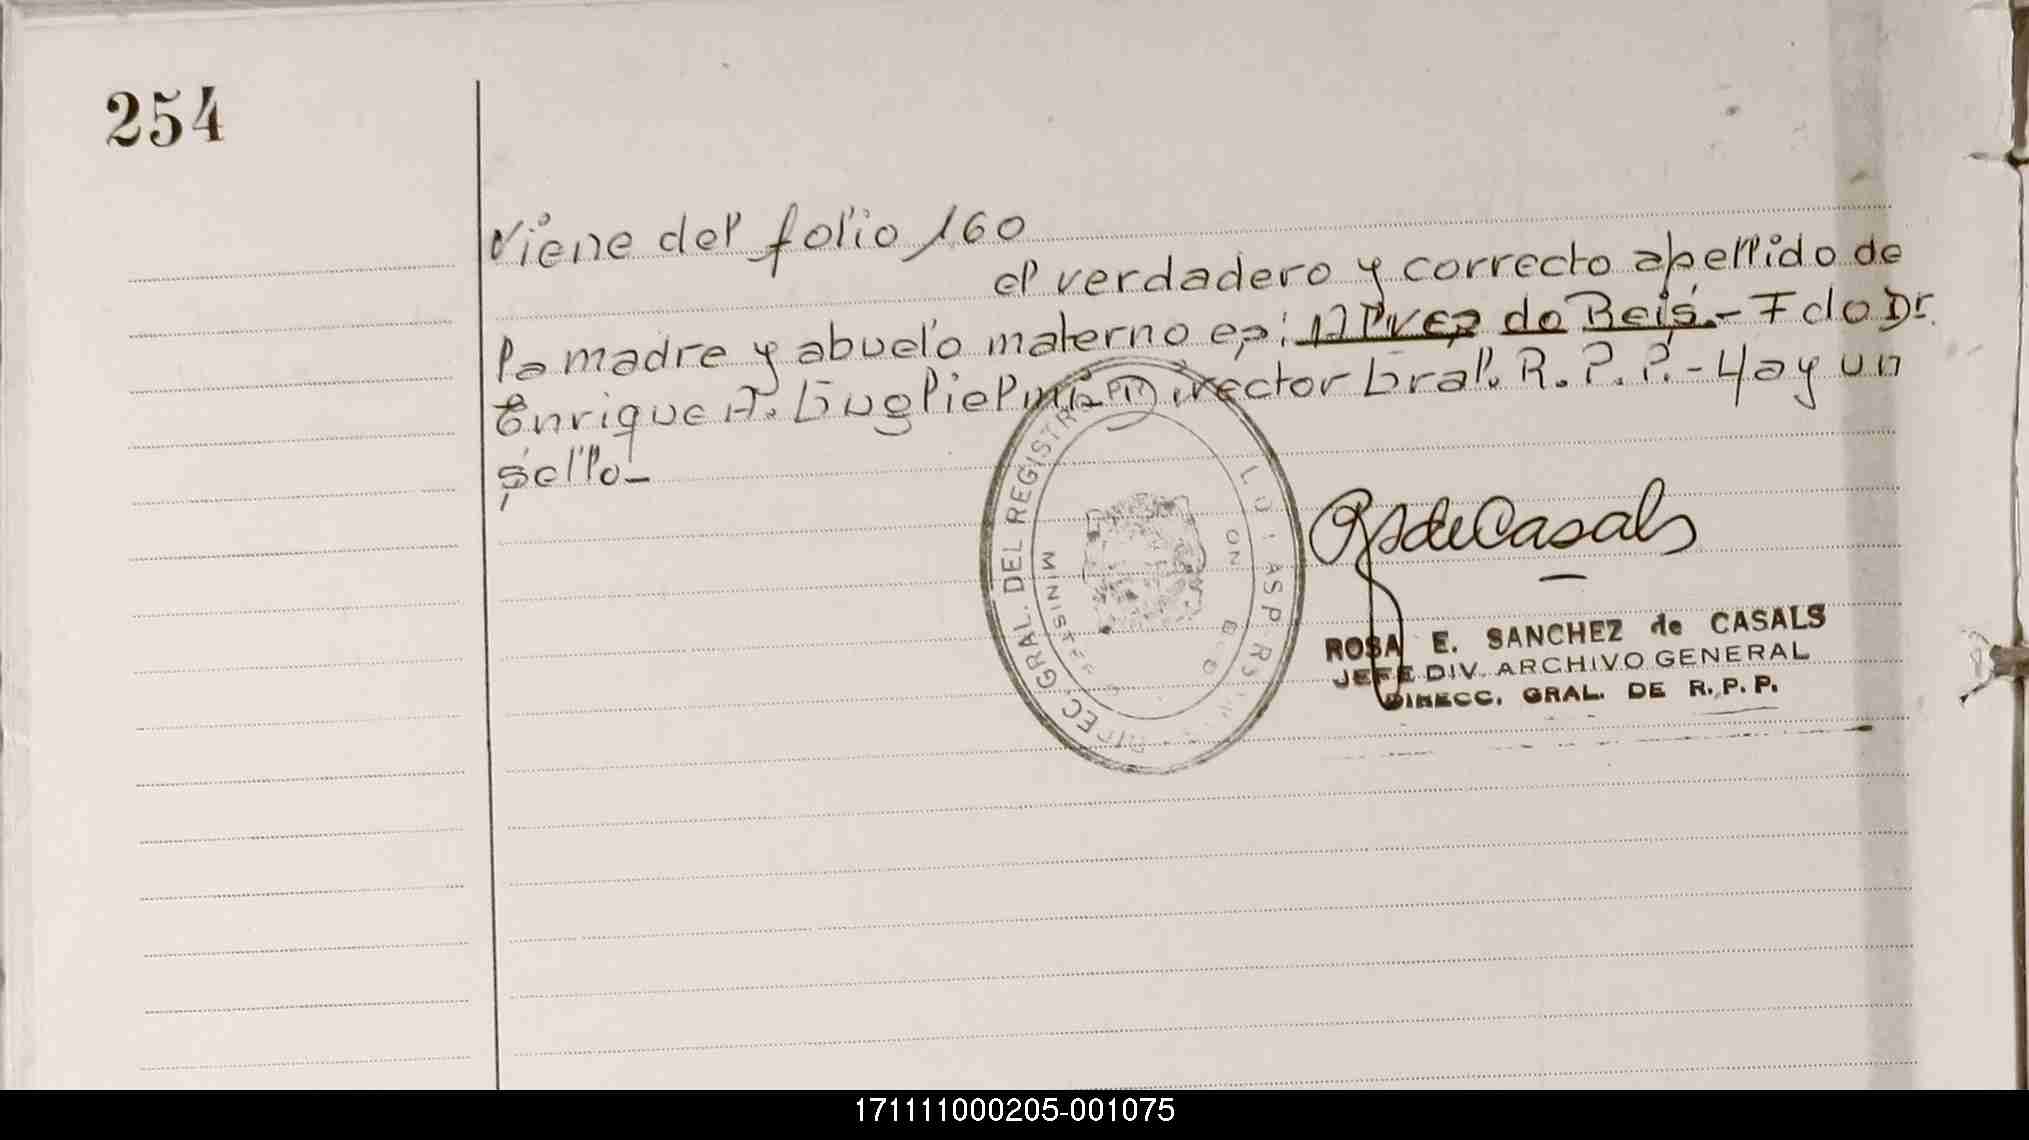 254
Viene del folio 160
el verdadero y correcto apellido de
la madre y abuelo materno es: Alvez do Reis.- Fdo Dr.
Enrique A. Guglielmi Director Gral. R. P. P. - Hay un
sello_
DIREC. GRAL. DEL REGISTR
MINISTE
RdeCasals
ROSA E. SANCHEZ de CASALS
JEFE DIV. ARCHIVO GENERAL
DIRECC. GRAL. DE R. P. P.
171111000205-001075